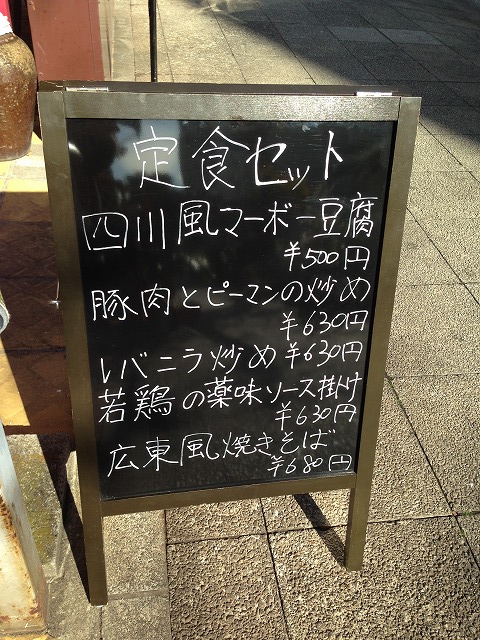 定食セット
四川風マーボー豆腐
¥500円
豚肉とピーマンの炒め
¥630円
レバニラ炒め ¥630円
若鶏の薬味ソース掛け
¥630円
広東風焼きそば
¥680円